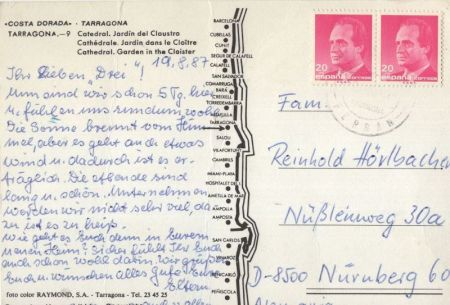 «COSTA DORADA» - TARRAGONA
TARRAGONA.-9 Catedral. Jardín del Claustro
Cathédrale. Jardin dans le Cloître
Cathedral. Garden in the Cloister
19.8.87
Ihr Lieben „Drei"!
Nun sind wir schon 5 Tg. hier
u. fühlen uns rundum wohl.
Die Sonne brennt vom Him-
mel, aber es geht auch etwas
Wind u. dadurch ist es er-
träglich. Die Abende sind
lang u. schön. Unternehmen
werden wir nicht sehr viel, da-
zu ist es zu heiß.
Wie geht es Euch denn in Eurem
neuen Heim? Sicher fühlt Ihr Euch
auch schon wohl darin. Wir grüßen
Euch u. wünschen alles Gute Eure
Eltern
foto color RAYMOND, S.A. - Tarragona - Tel. 23 45 25
BARCELONA
CUBELLAS
CUNIT
SEGUR DE CALAFELL
CALAFELL
SAN SALVADOR
COMARRUGA
BARÁ
CREIXELL
TORREDEMBARRA
ALTAFULLA
TARRAGONA
SALOU
VILAFORTUNY
CAMBRILS
MIAMI-PLAYA
HOSPITALET DE
AMETLLA DE MAR
AMPOLLA
AMPOSTA
SAN CARLOS
VINAROZ
BENICARLÓ
PEÑISCOLA
20
ESPAÑA
CORREOS
20
ESPAÑA
CORREOS
Fam.
Reinhold Hörlbacher
Nüßleinweg 30a
D-8500 Nürnberg 60